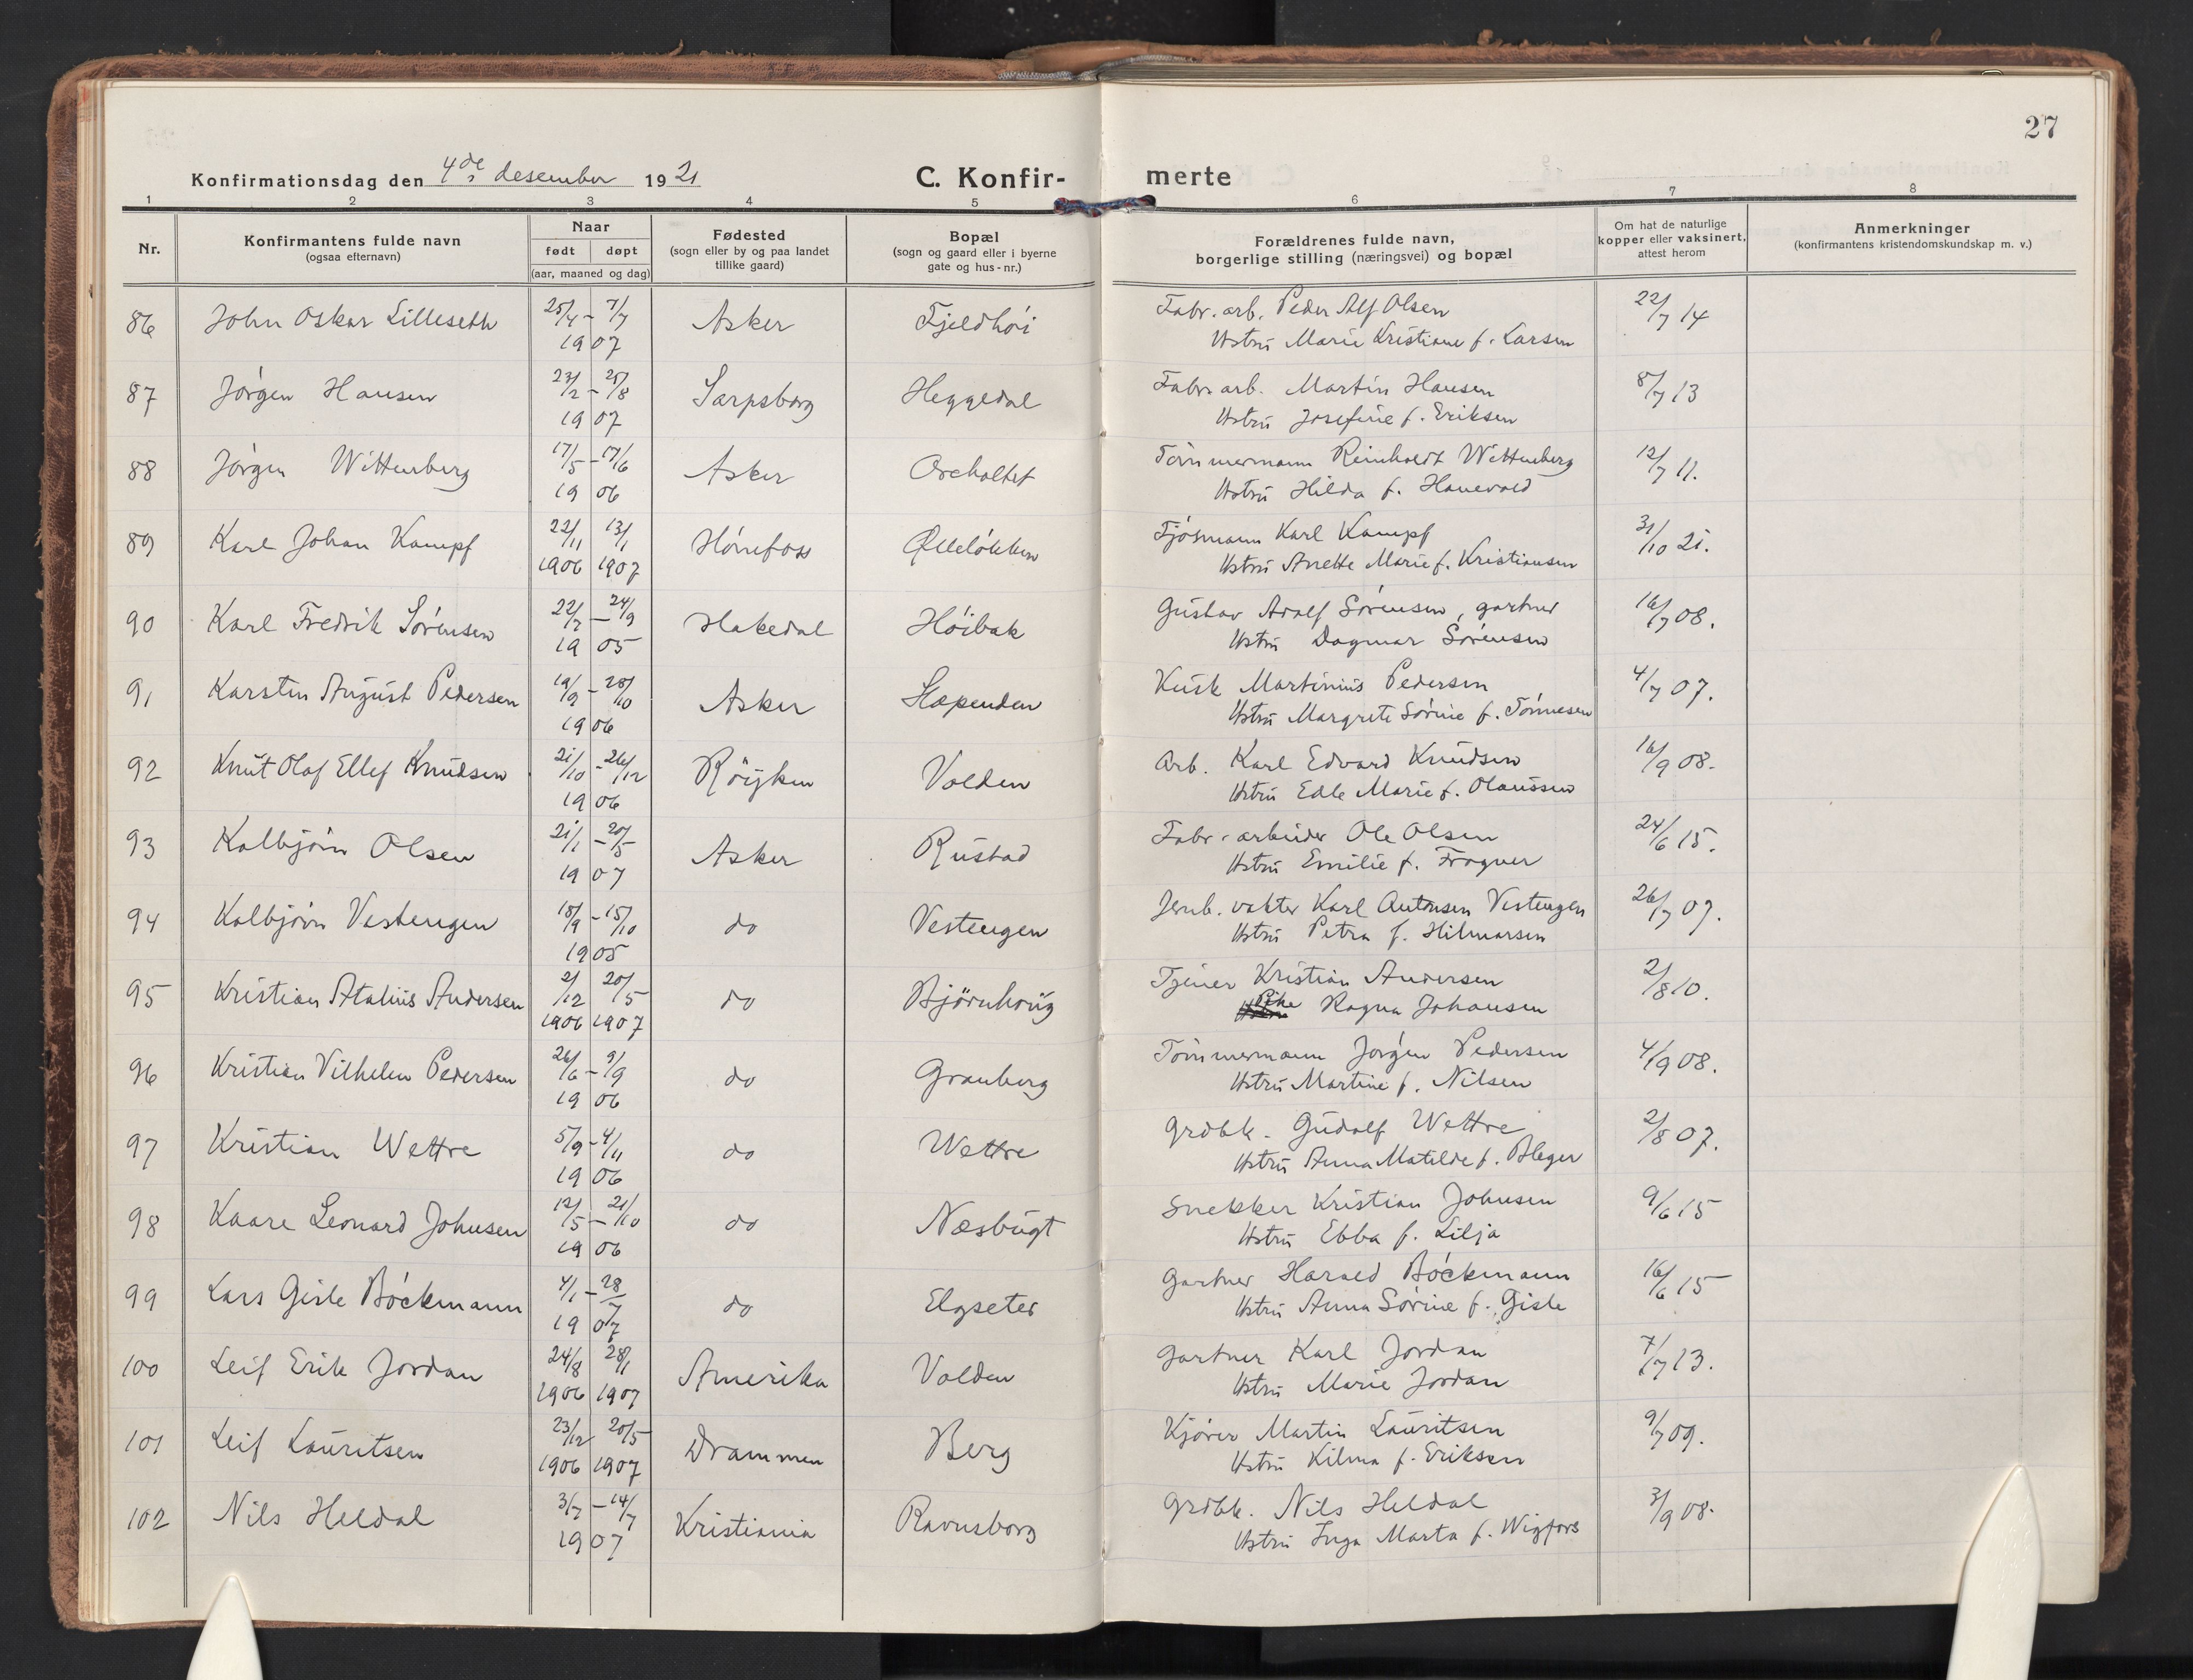 27
Konfirmationsdag den 4de desember 1921
C. Konfir-merte
1 2 3 4 5 6 7 8
Nr.
Konfirmantens fulde navn
(ogsaa efternavn)
Naar
født døpt
(aar, maaned og dag)
Fødested
(sogn eller by og paa landet
tillike gaard)
Bopæl
(sogn og gaard eller i byerne
gate og hus-nr.)
Forældrenes fulde navn,
borgerlige stilling (næringsvei) og bopæl
Om hat de naturlige
kopper eller vaksinert,
attest herom
Anmerkninger
(konfirmantens kristendomskundskap m. v.)
86 John Oskar Lilleseth 25/4 - 7/7 Asker Fjeldhöi Fabr. arb. Peder Alf Olsen 22/7 14
1907 Hstru Marie Kristiane f. Larsen
87 Jörgen Hansen 23/2 - 25/8 Sarpsborg Heggedal Fabr. arb. Martin Hansen 8/7 13
1907 Hstru Josefine f. Eriksen
88 Jörgen Wittenberg 17/5 - 17/6 Asker Oreholtet Tömmermann Reinholdt Wittenberg 12/7 11.
1906 Hstru Hilda f. Hanevold
89 Karl Johan Kampf 22/11 13/1 Hönefoss Ølleløkken Fjösmann Karl Kampf 31/10 21.
1906 1907 Hstru Anette Marie f. Kristiansen
90 Karl Fredrik Sörensen 22/7 - 24/9 Hakedal Höibak Gustav Adolf Sörensen, gartner 16/7 08.
1905 Hstru Dagmar Sörensen
91 Karsten August Pedersen 19/9 - 28/10 Asker Slæpenden Kusk Martinius Pedersen 4/7 07.
1906 Hstru Margrete Sörine f. Tönnesen
92 Knut Olaf Ellef Knudsen 21/10 - 26/12 Röyken Volden Arb. Karl Edvard Knudsen 16/9 08.
1906 Hstru Edle Marie f. Olaussen
93 Kolbjörn Olsen 21/1 - 20/5 Asker Rustad Fabr. arbeider Ole Olsen 24/6 15.
1907 Hstru Emilie f. Frogner
94 Kolbjörn Vestengen 18/9 - 15/10 do Vestengen Jernb. vokter Karl Antonsen Vestengen 26/7 07.
1905 Hstru Petra f. Hilmarsen
95 Kristian Atalius Andersen 2/12 20/5 do Björnhaug Tjener Kristian Andersen 2/8 10.
1906 1907 Pike Ragna Johansen
96 Kristian Vilhelm Pedersen 26/6 - 9/9 do Granberg Tömmermann Jörgen Pedersen 4/9 08.
1906 Hstru Martine f. Nilsen
97 Kristian Wettre 5/9 - 4/11 do Wettre Grdbk. Gudolf Wettre 2/8 07.
1906 Hstru Anna Matilde f. Bleger
98 Kaare Leonard Johnsen 12/5 - 21/10 do Næsbugt Snekker Kristian Johnsen 9/6 15
1906 Hstru Ebba f. Lilja
99 Lars Gisle Böckmann 4/1 - 28/7 do Elgseter Gartner Harald Böckmann 16/6 15
1907 Hstru Anna Sörine f. Gisle
100 Leif Erik Jordan 24/8 28/1 Amerika Volden Gartner Karl Jordan 7/7 13.
1906 1907 Hstru Marie Jordan
101 Leif Lauritsen 23/12 20/5 Drammen Berg Kjörer Martin Lauritsen 9/7 09.
1906 1907 Hstru Hilma f. Eriksen
102 Nils Heldal 3/7 - 14/7 Kristiania Ravnsborg Grdbk. Nils Heldal 3/9 08.
1907 Hstru Inga Marta f. Wigfors